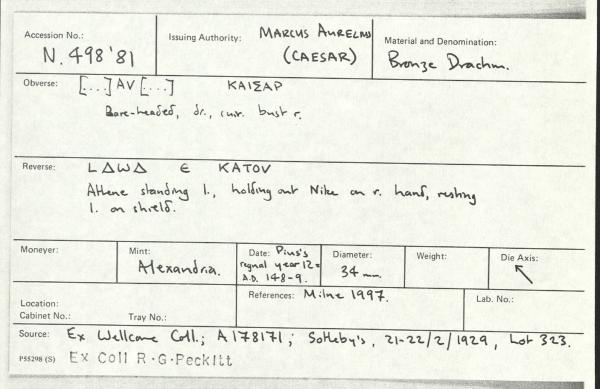 Accession No.: N.498'81
Issuing Authority: MARCUS AURELIUS
(CAESAR)
Material and Denomination:
Bronze Drachm.
Obverse: [...] AV [...] ΚΑΙΣΑΡ
Bare-headed, dr., cuir. bust r.
Reverse: L ΔωΔ Є ΚΑΤΟV
Athene standing l., holding out Nike on r. hand, resting
l. on shield.
Moneyer:
Mint:
Alexandria.
Date: Pius's
regnal year 12 =
A.D. 148-9.
Diameter:
34 mm.
Weight:
Die Axis:
↖
Location:
Cabinet No.: Tray No.:
References: Milne 1997.
Lab. No.:
Source: Ex Wellcome Coll.; A178171; Sotheby's, 21-22/2/1929, Lot 323.
P55298 (S) Ex Coll R.G.Peckitt